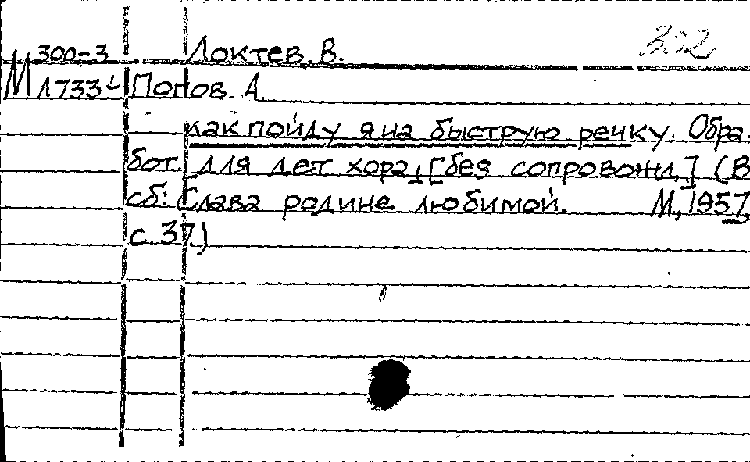 М 300-3 Локтев В.
1733 Попов А
Как пойду я на быструю речку. Обра-
бот. для дет. хора, [без сопровожд.] (В
сб: Слава родине любимой. М, 1957,
с. 37)